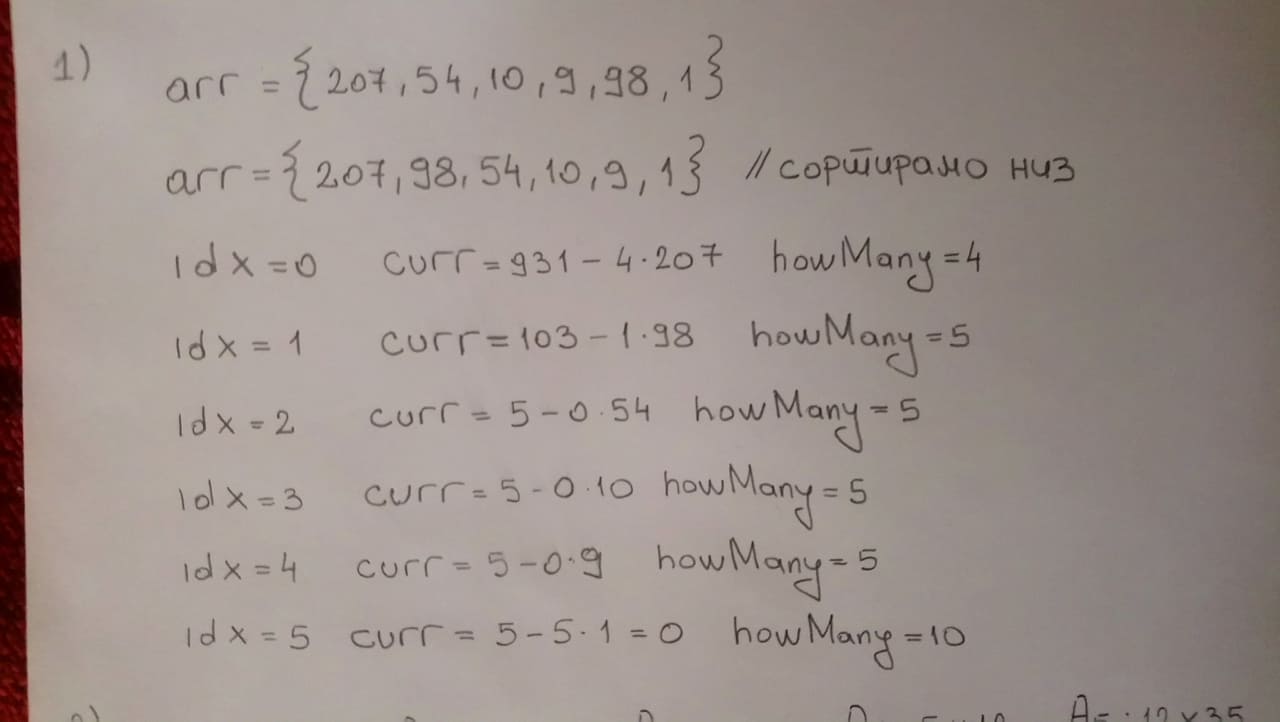 1)
arr = {207, 54, 10, 9, 98, 1}
arr = {207, 98, 54, 10, 9, 1} // сортирамо низ
idx = 0 curr = 931 - 4·207 howMany = 4
idx = 1 curr = 103 - 1·98 howMany = 5
idx = 2 curr = 5 - 0·54 howMany = 5
idx = 3 curr = 5 - 0·10 howMany = 5
idx = 4 curr = 5 - 0·9 howMany = 5
idx = 5 curr = 5 - 5·1 = 0 howMany = 10